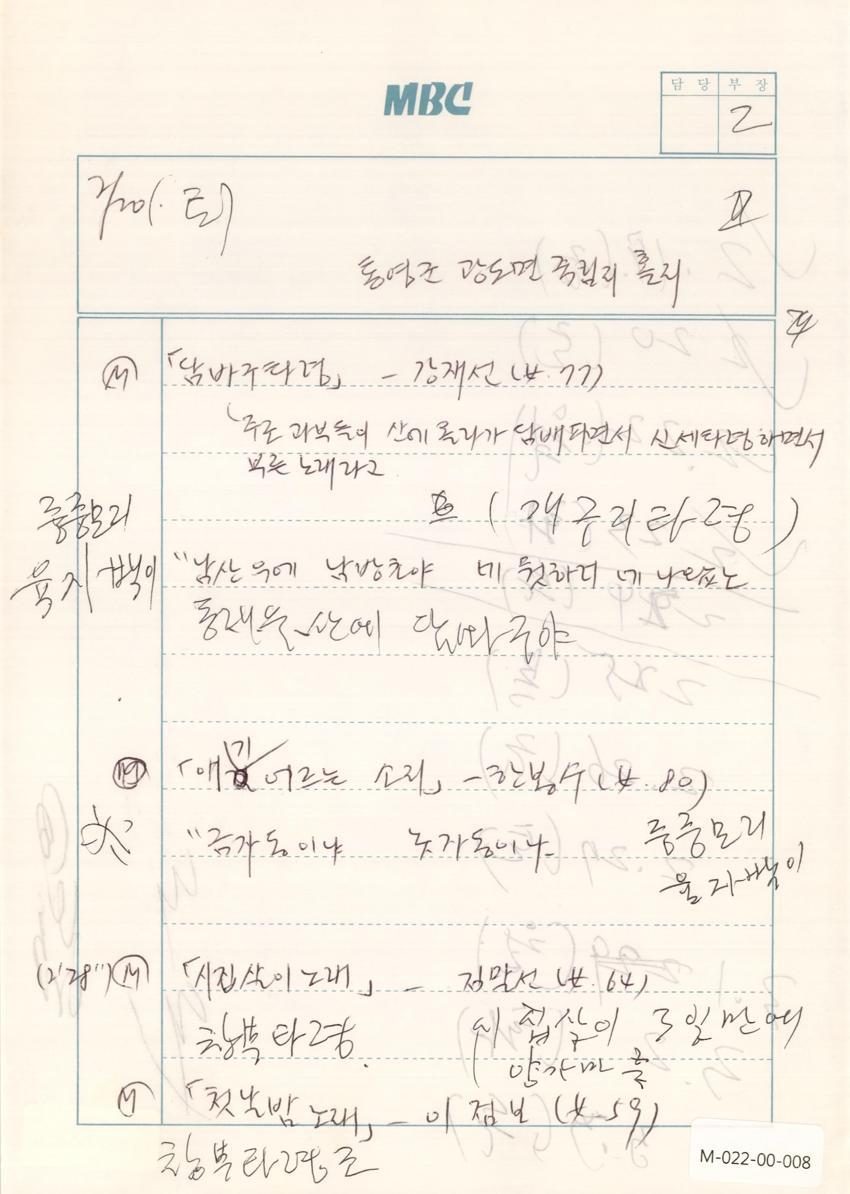 MBC
담 당 부 장
2
7/20(. 토)
II
통영군 광도면 죽림리 홀리
M 「담바구타령」 - 강재선 (女. 77)
주로 과부들이 산에 올라가 담배피면서 신세타령하면서
부른 노래라고
중중모리
(객구리타령)
육자백이
"남산 우에 남방초야 네 뭣하러 네 나왔노
동래울산에 담바구야
M 「애기 어르는 소리」 - 한봉수 (女. 80)
"금자동이냐 옥자동이냐
중중모리
육자백이
(2'28") M 「시집살이 노래」 - 정말선 (女. 64)
창부타령.
시집살이 3일만에
양가마
M 「첫날밤 노래」 - 이점보 (女. 59)
창부타령조
M-022-00-008